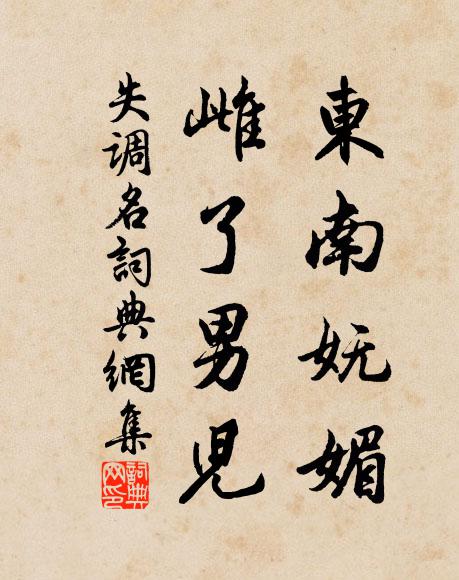 東南妩媚
雌了男児
失调名詞典網集
詞典网印